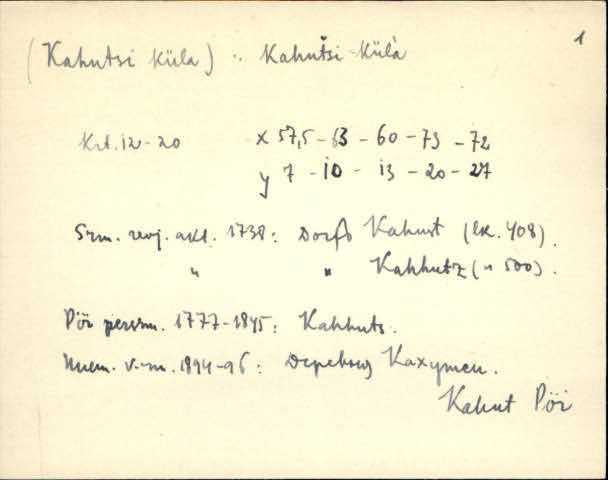 1
(Kahutsi küla) : Kahutši-külà
Krt. 12-20 x 57,5 - 63 - 60 - 73 - 72
y 7 - 10 - 13 - 20 - 27
Srm. revj. akt. 1738: Dorf Kahust (lk. 408).
" " Kahhutz (" 500).
Pöi persm. 1777-1845: Kahhuts.
1894-96: Деревня Кахутси.
Kahut Pöi